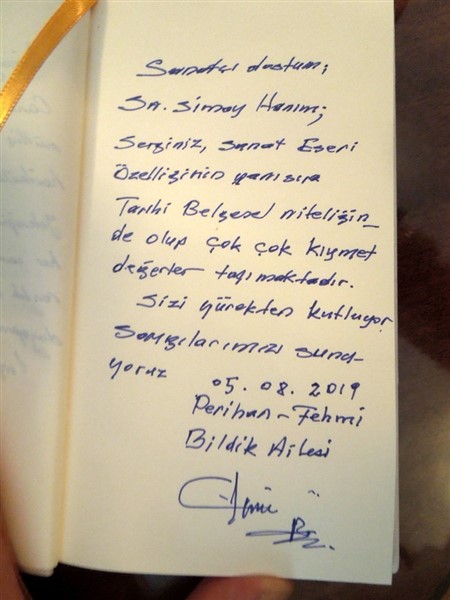 Sanatçı dostum;
Sn. Simay Hanım;
Serginiz, sanat Eseri
Özelliğinin yanısıra
Tarihi Belgesel niteliğin_
de olup çok çok kıymet
değerler taşımaktadır.
Sizi yürekten kutluyor
Saygılarımızı sunu-
yoruz
05.08.2019
Perihan - Fehmi
Bildik Ailesi